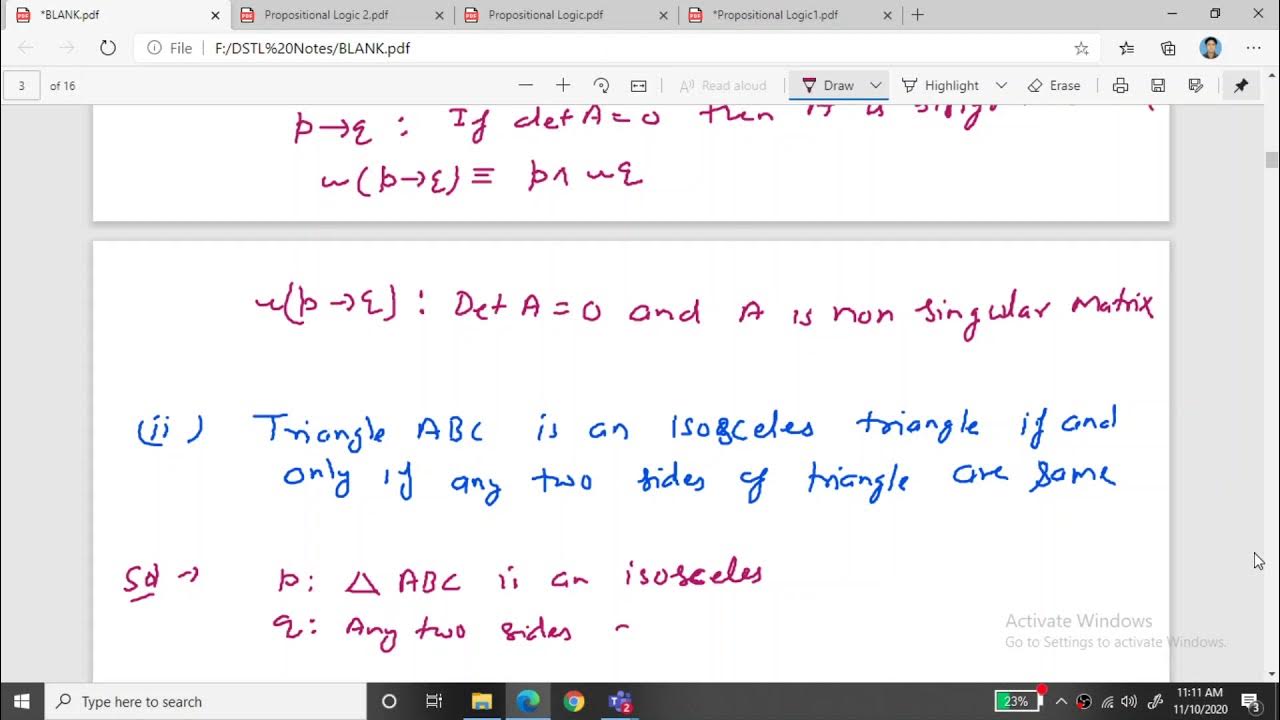 *BLANK.pdf
Propositional Logic 2.pdf
Propositional Logic.pdf
*Propositional Logic1.pdf
File F:/DSTL%20Notes/BLANK.pdf
3 of 16
Read aloud
Draw
Highlight
Erase
p→q : If det A = 0 then A is
~(p→q) ≡ p∧ ~q
~(p→q) : Det A = 0 and A is non singular matrix
(ii) Triangle ABC is an isosceles triangle if and
only if any two sides of triangle are same
Sol → p: △ ABC is an isosceles
q: Any two sides
Activate Windows
Go to Settings to activate Windows.
Type here to search
2
23%
11:11 AM
11/10/2020
3